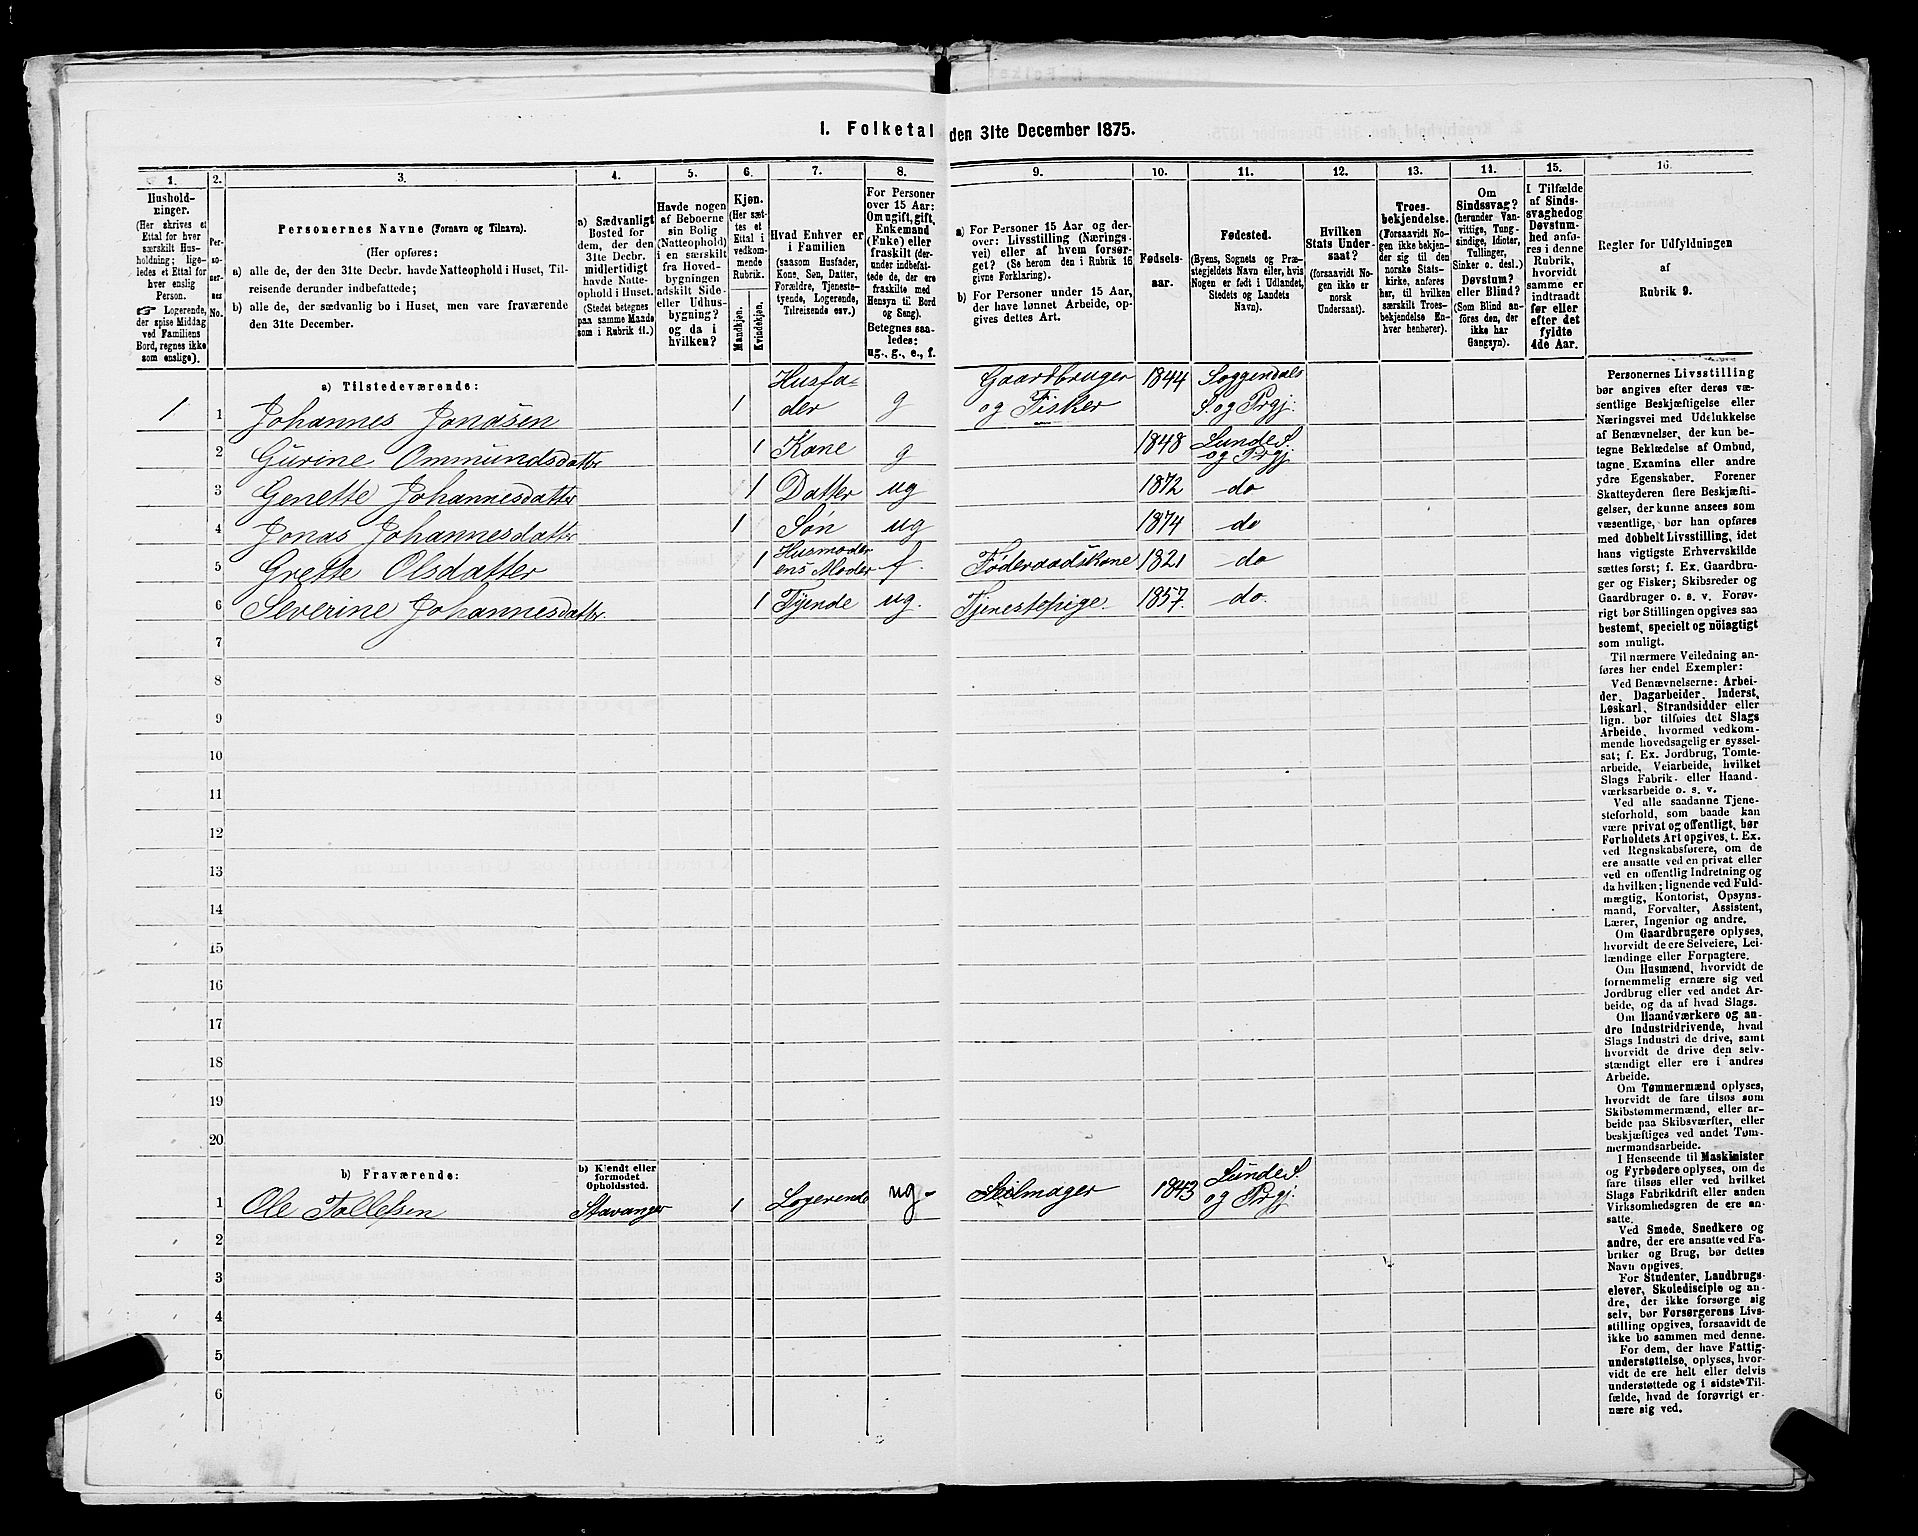 I. Folketal den 31te December 1875.
1. 2. 3. 4. 5. 6. 7. 8. 9. 10. 11. 12. 13. 14. 15. 16.
Husholdninger.
(Her skrives et
Ettal for hver
særskilt Hus-
holdning; lige-
ledes et Ettal for
hver enslig
Person.
☞ Logerende,
der spise Middag
ved Familiens
Bord, regnes ikke
som enslige).
Personernes No.
Personernes Navne (Fornavn og Tilnavn).
(Her opføres:
a) alle de, der den 31te Decbr. havde Natteophold i Huset, Til-
reisende derunder indbefattede;
b) alle de, der sædvanlig bo i Huset, men vare fraværende
den 31te December.
a) Sædvanligt
Bosted for
dem, der den
31te Decbr.
midlertidigt
havde Natte-
ophold i Huset.
(Stedet betegnes
paa samme Maade
som i Rubrik 11.)
Havde nogen
af Beboerne
sin Bolig
(Natteophold)
i en særskilt
fra Hoved-
bygningen
adskilt Side-
eller Udhus-
bygning?
og da i
hvilken?
Kjøn.
(Her sæt-
tes et
Ettal i
vedkom-
mende
Rubrik.
Mandkjøn.
Kvindekjøn.
Hvad Enhver er
i Familien
(saasom Husfader,
Kone, Søn, Datter,
Forældre, Tjeneste-
tyende, Logerende,
Tilreisende osv.)
For Personer
over 15 Aar:
Om ugift, gift,
Enkemand
(Enke) eller
fraskilt (der-
under indbefat-
tede de, der ere
fraskilte med
Hensyn til Bord
og Seng).
Betegnes saa-
ledes:
ug., g., e., f.
a) For Personer 15 Aar og der-
over: Livsstilling (Nærings-
vei) eller af hvem forsør-
get? (Se herom den i Rubrik 16
givne Forklaring).
b) For Personer under 15 Aar,
der have lønnet Arbeide, op-
gives dettes Art.
Fødsels-
aar.
Fødested.
(Byens, Sognets og Præ-
stegjeldets Navn eller, hvis
Nogen er født i Udlandet,
Stedets og Landets
Navn).
Hvilken
Stats Under-
saat?
(forsaavidt No-
gen ikke er
norsk
Undersaat).
Troes-
bekjendelse.
(Forsaavidt No-
gen ikke bekjen-
der sig til den
norske Stats-
kirke, anføres
her, til hvilken
særskilt Troes-
bekjendelse En-
hver henhører).
Om
Sindssvag?
(herunder Van-
vittige, Tung-
sindige, Idioter,
Tullinger,
Sinker o. desl.)
Døvstum?
eller Blind?
(Som Blind an-
føres den, der
ikke har
Gangsyn).
I Tilfælde
af Sinds-
svaghed og
Døvstum-
hed anfø-
res i denne
Rubrik,
hvorvidt
samme er
indtraadt
før eller
efter det
fyldte
4de Aar.
Regler for Udfyldningen
af
Rubrik 9.
a) Tilstedeværende:
1 1 Johannes Jonasen 1 Husfa-
der g Gaardbruger
og Fisker 1844 Soggendals
S. og Prgj.
2 Gurine Ommundsdatter 1 Kone g 1848 Lunde S.
og Prgj
3 Genette Johannesdatter 1 Datter ug 1872 do
4 Jonas Johannesdatter 1 Søn ug 1874 do
5 Grette Olsdatter 1 Husmoder
ens Moder f. Føderaadskone 1821 do
6 Severine Johannesdatter. 1 Tyende ug. Tjenestepige 1857. do.
7
8
9
10
11
12
13
14
15
16
17
18
19
20
b) Fraværende:
b) Kjendt eller
formodet
Opholdssted.
1 Ole Tollefsen Stavanger 1 Logerende ug. Seilmager 1843 Lunde S.
og Prgj.
2
3
4
5
6
Personernes Livsstilling
bør angives efter deres væ-
sentlige Beskjæftigelse eller
Næringsvei med Udelukkelse
af Benævnelser, der kun be-
tegne Beklædelse af Ombud,
tagne Examina eller andre
ydre Egenskaber. Forener
Skatteyderen flere Beskjæfti-
gelser, der kunne ansees som
væsentlige, bør han opføres
med dobbelt Livsstilling, idet
hans vigtigste Erhvervskilde
sættes først; f. Ex. Gaardbru-
ger og Fisker; Skibsreder og
Gaardbruger o. s. v. Forøv-
rigt bør Stillingen opgives saa
bestemt, specielt og nöiagtigt
som muligt.
Til nærmere Veiledning an-
føres her endel Exempler:
Ved Benævnelserne: Arbei-
der, Dagarbeider, Inderst,
Løskarl, Strandsidder eller
lign. bør tilføies det Slags
Arbeide, hvormed vedkom-
mende hovedsagelig er syssel-
sat; f. Ex. Jordbrug, Tomte-
arbeide, Veiarbeide, hvilket
Slags Fabrik- eller Haand-
værksarbeide o. s. v.
Ved alle saadanne Tjene-
steforhold, som baade kan
være privat og offentligt, bør
Forholdets Art opgives, t. Ex.
ved Regnskabsførere, om de
ere ansatte ved en privat eller
ved en offentlig Indretning og
da hvilken; lignende ved Fuld-
mægtig, Kontorist, Opsyns-
mand, Forvalter, Assistent,
Lærer, Ingeniør og andre.
Om Gaardbrugere oplyses,
hvorvidt de ere Selveiere, Lei-
lændinge eller Forpagtere.
Om Husmænd, hvorvidt de
fornemmelig ernære sig ved
Jordbrug eller ved andet Ar-
beide, og da af hvad Slags.
Om Haandværkere og an-
dre Industridrivende, hvad
Slags Industri de drive, samt
hvorvidt de drive den selv-
stændigt eller ere i andres
Arbeide.
Om Tømmermænd oplyses,
hvorvidt de fare tilsøs som
Skibstømmermænd, eller ar-
beide paa Skibsværfter, eller
beskjæftiges ved andet Tøm-
mermandsarbeide.
I Henseende til Maskinister
og Fyrbødere oplyses, om de
fare tilsøs eller ved hvilket
Slags Fabrikdrift eller anden
Virksomhedsgren de ere an-
satte.
Ved Smede, Snedkere og
andre, der ere ansatte ved Fa-
briker og Brug, bør dettes
Navn opgives.
For Studenter, Landbrugs-
elever, Skoledisciple og an-
dre, der ikke forsørge sig
selv, bør Forsørgerens Livs-
stilling opgives, forsaavidt de
ikke bo sammen med denne.
For dem, der have Fattig-
understøttelse, oplyses, hvor-
vidt de ere helt eller delvis
understøttede og i sidste Til-
fælde, hvad de forøvrigt er-
nære sig ved.